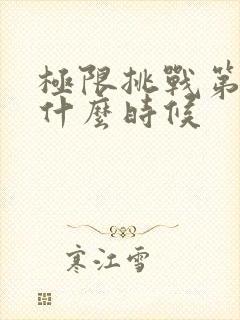 極限挑戰第
什麼時候
寒江雪